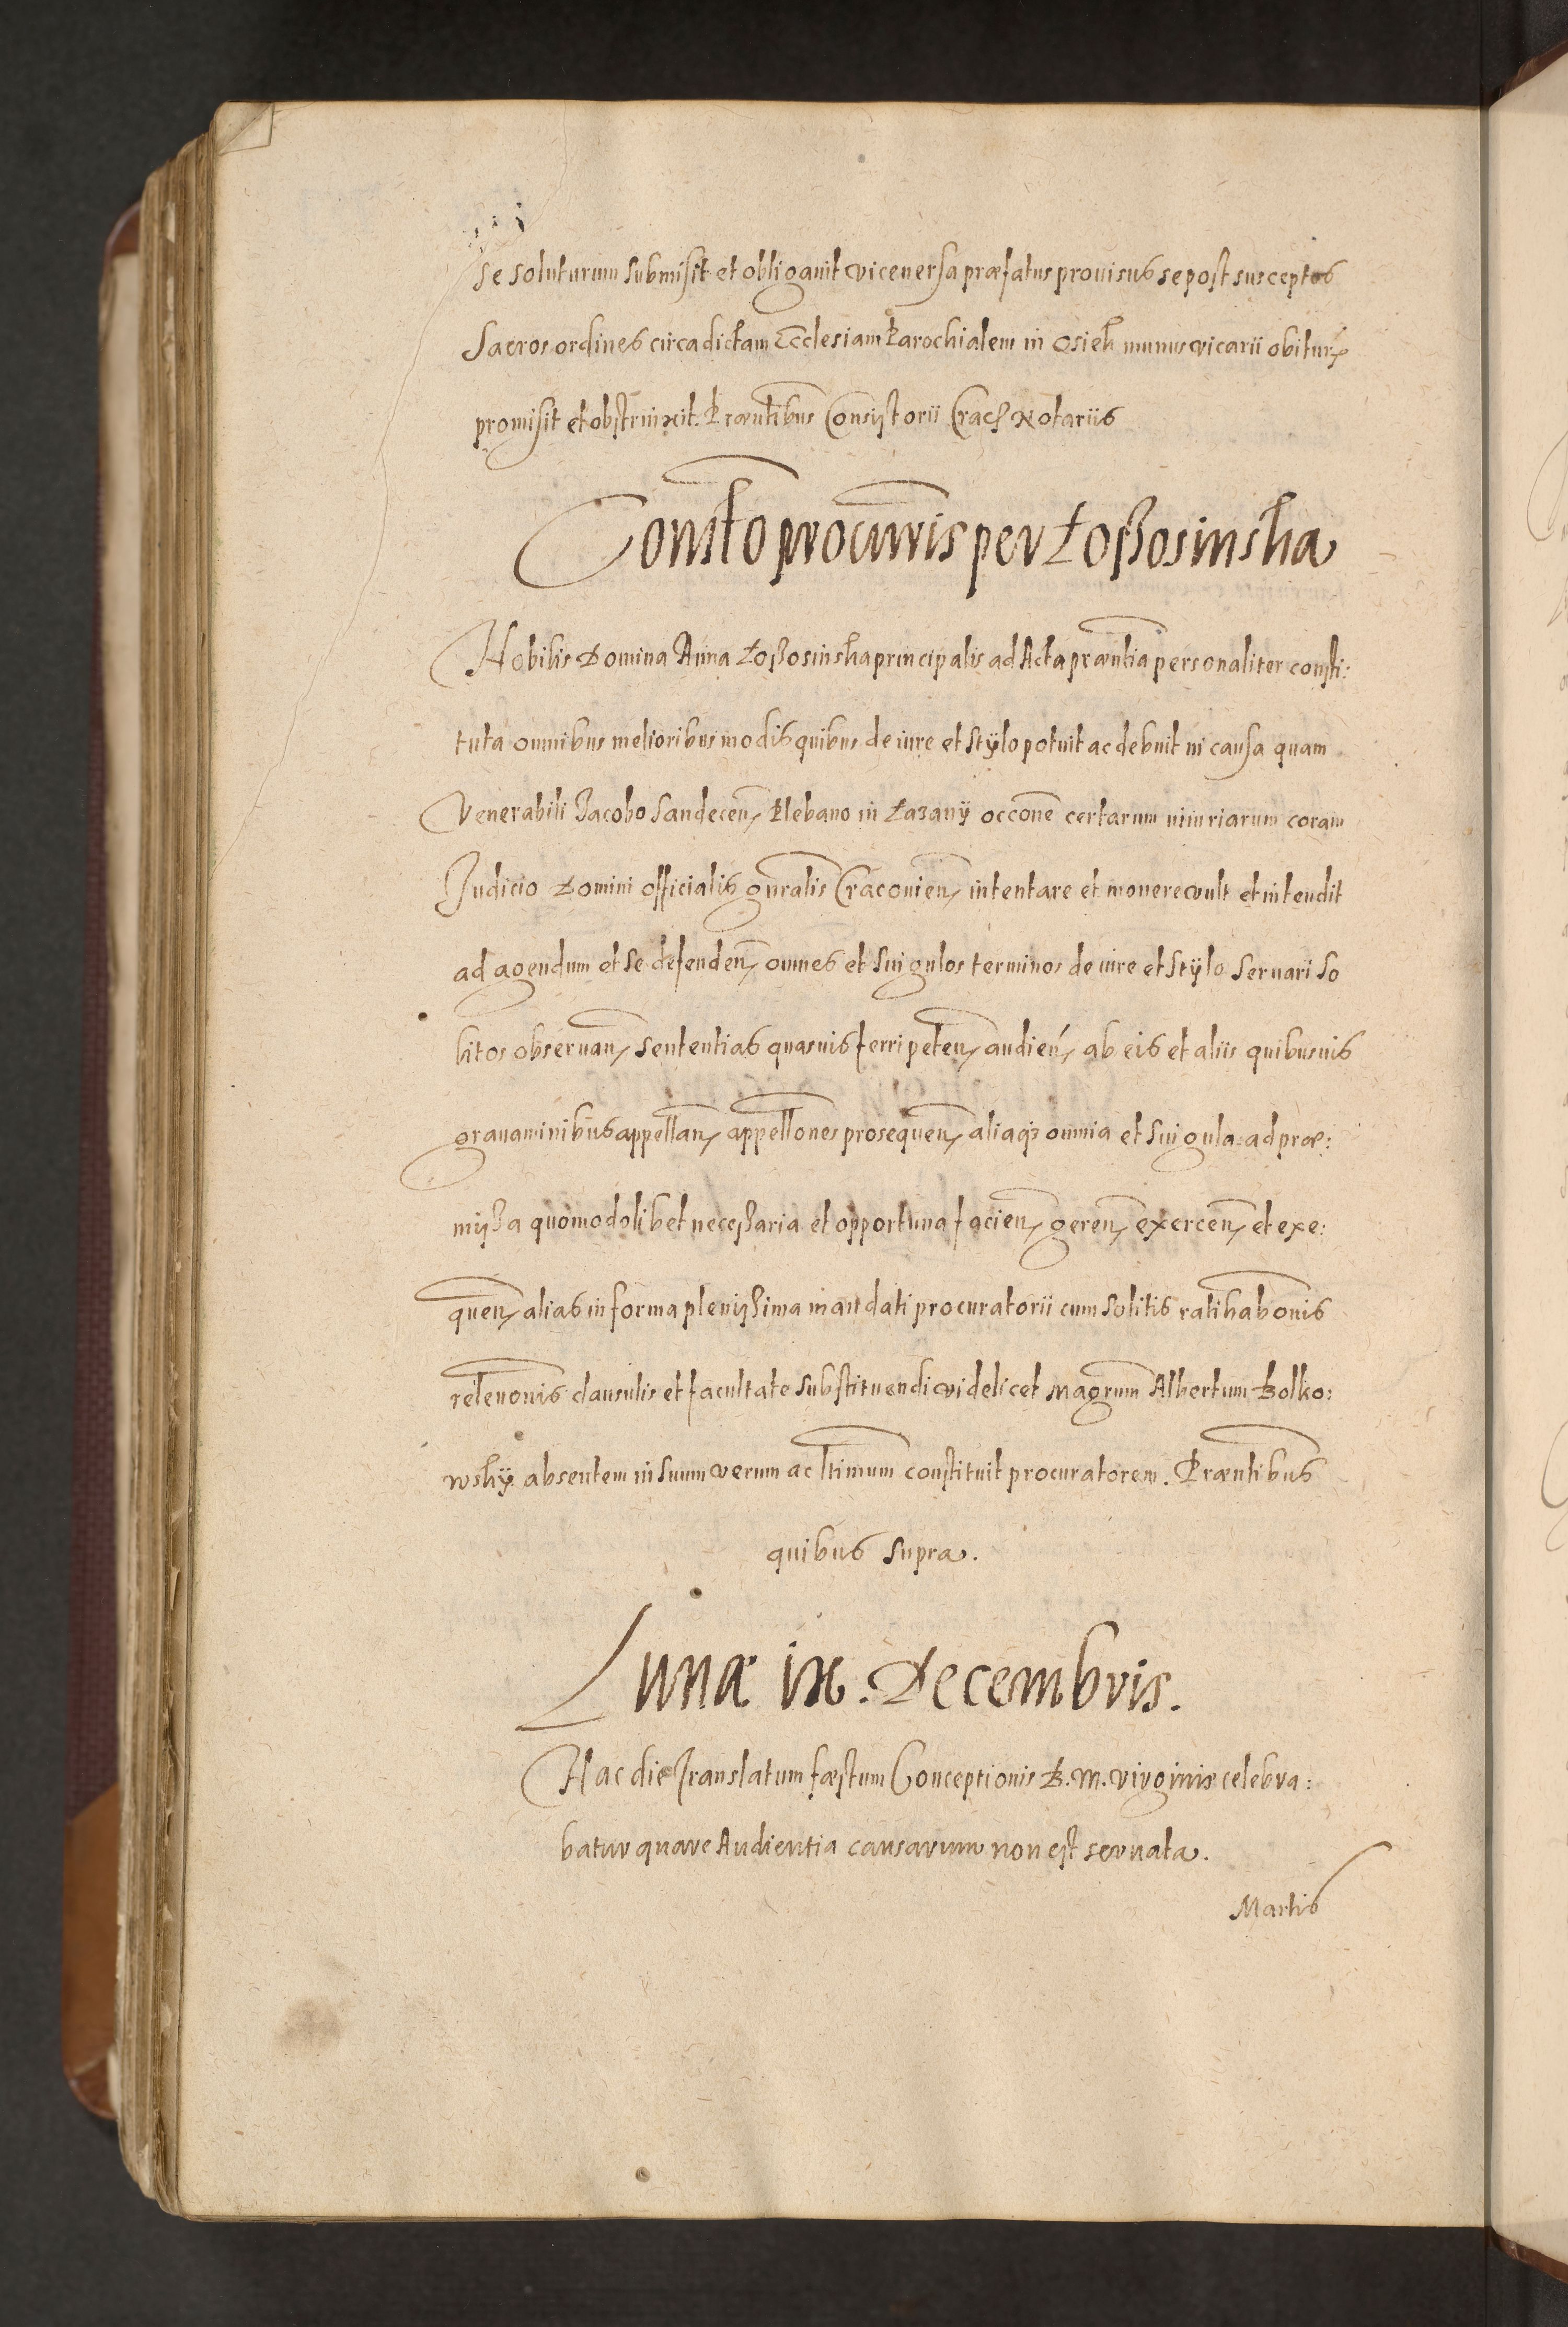 se soluturum submisit et obligauit viceuersa præfatus prouisus se post susceptos
sacros ordines circa dictam Ecclesiam Parochialem in Osiek munus vicarii obitur
promisit et obstrinxit. Præntibus Consistorii Crac Notariis
Constō procuris per Łoßosinska
Nobilis Domina Anna Łoßosinska principalis ad Acta præntia personaliter consti:
tuta omnibus melioribus modis quibus de iure et stÿlo potuit ac debuit in causa quam
Venerabili Jacobo Sandecen Plebano in Łazanÿ occone certarum iniuriarum coram
Judicio Domini officialis gnralis Cracouien intentare et mouere vult et intendit
ad agendum et se defenden omnes et singulos terminos de iure et stÿlo seruari so
litos obseruan sententias quasuis ferri peten audien ab eis et aliis quibusuis
grauaminibus appellan appellones prosequen aliaq3 omnia et singula ad præ:
mißa quomodolibet neceßaria et opportuna facien geren exercen et exe:
quen alias in forma plenißima mandati procuratorii cum solitis ratihabonis
releuonis clausulis et facultate substituendi videlicet Magrum Albertum Bolko:
wskÿ absentem in suum verum ac ltimum constituit procuratorem. Præntibus
quibus supra.
Lunæ ix. Decembris.
Hac die Translatum fæstum Conceptionis B. M. virginis celebra:
batur quare Audientia causarum non est seruata.
Martis